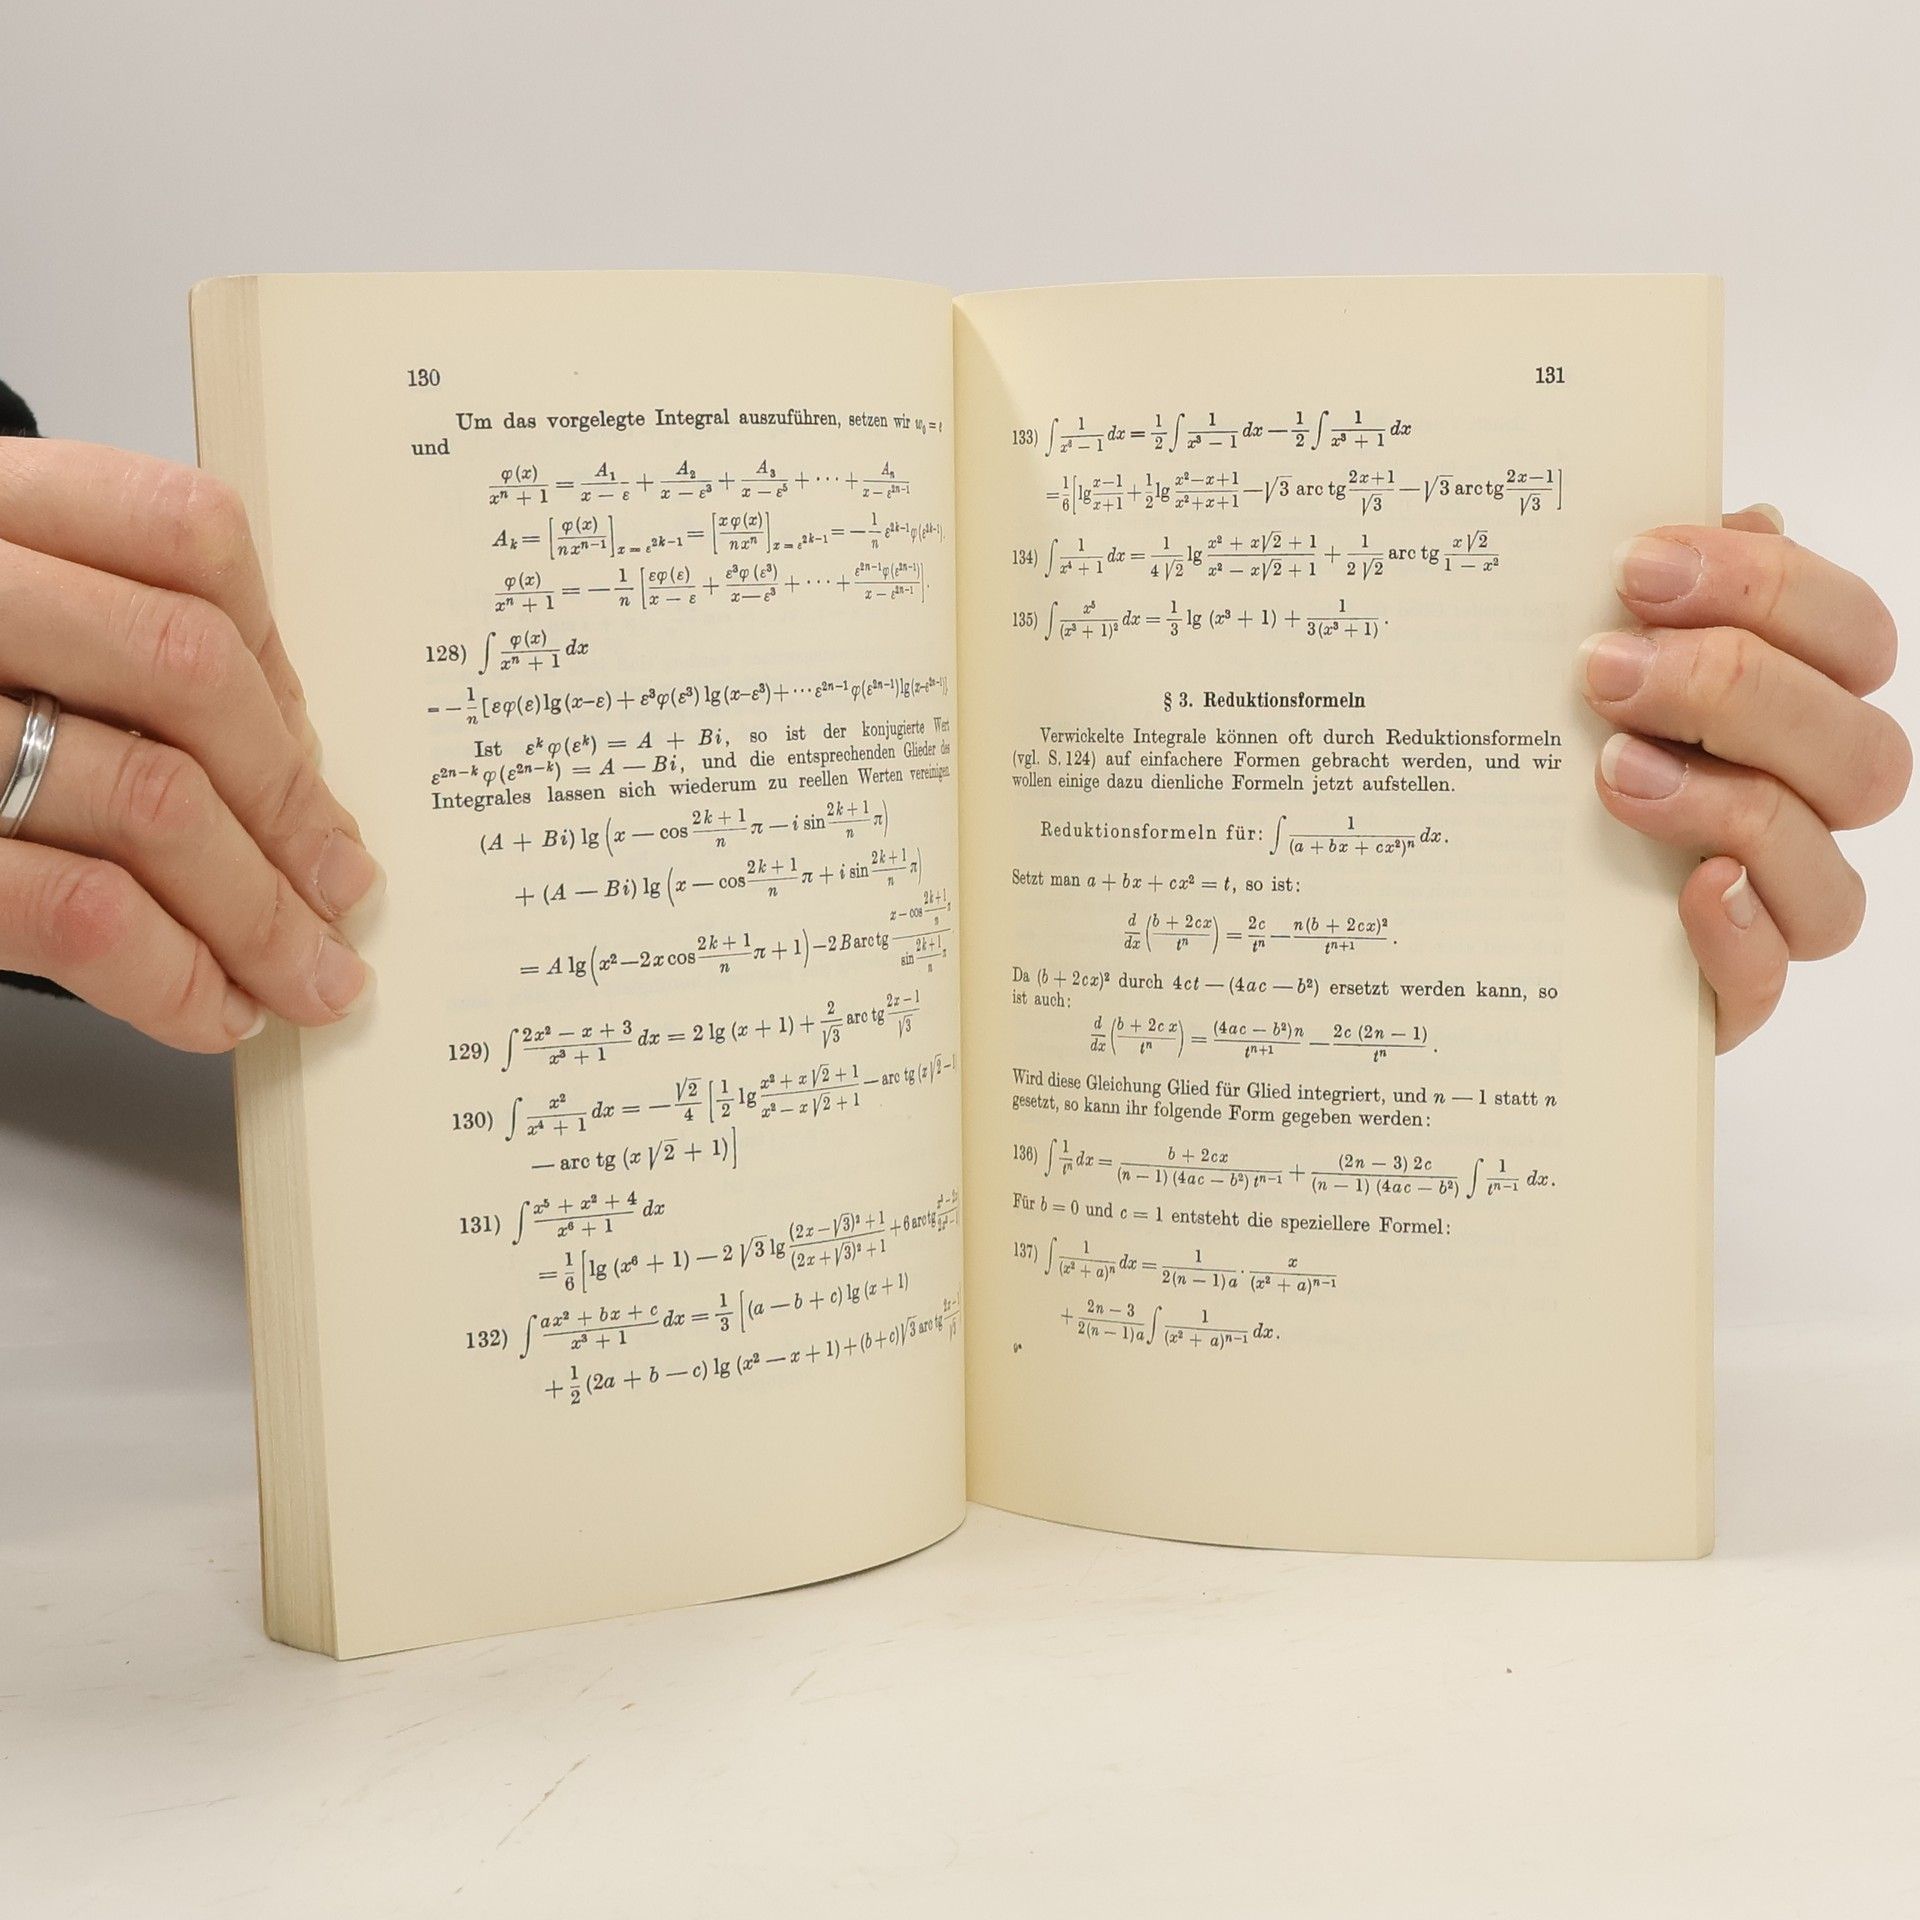 130
Um das vorgelegte Integral auszuführen, setzen wir w₀ = ε
und
φ(x)/(xⁿ + 1) = A₁/(x − ε) + A₂/(x − ε³) + A₃/(x − ε⁵) + ··· + Aₙ/(x − ε²ⁿ⁻¹)
Aₖ = [φ(x)/(nxⁿ⁻¹)]ₓ ₌ ε²ᵏ⁻¹ = [xφ(x)/(nxⁿ)]ₓ ₌ ε²ᵏ⁻¹ = −(1/n) ε²ᵏ⁻¹φ(ε²ᵏ⁻¹).
φ(x)/(xⁿ + 1) = −(1/n) [εφ(ε)/(x − ε) + ε³φ(ε³)/(x − ε³) + ··· + ε²ⁿ⁻¹φ(ε²ⁿ⁻¹)/(x − ε²ⁿ⁻¹)].
128) ∫ φ(x)/(xⁿ + 1) dx
= −(1/n) [εφ(ε) lg(x−ε) + ε³φ(ε³) lg(x−ε³) + ··· ε²ⁿ⁻¹φ(ε²ⁿ⁻¹) lg(x−ε²ⁿ⁻¹)].
Ist εᵏφ(εᵏ) = A + Bi, so ist der konjugierte Wert
ε²ⁿ⁻ᵏφ(ε²ⁿ⁻ᵏ) = A — Bi, und die entsprechenden Glieder des
Integrales lassen sich wiederum zu reellen Werten vereinigen
(A + Bi) lg (x — cos (2k + 1)/n π — i sin (2k + 1)/n π)
+ (A — Bi) lg (x — cos (2k + 1)/n π + i sin (2k + 1)/n π)
= A lg (x² — 2x cos (2k + 1)/n π + 1) — 2B arc tg (x — cos (2k+1)/n π)/(sin (2k+1)/n π)
129) ∫ (2x² — x + 3)/(x³ + 1) dx = 2 lg (x + 1) + 2/√3 arc tg (2x — 1)/√3
130) ∫ x²/(x⁴ + 1) dx = — √2/4 [1/2 lg (x² + x√2 + 1)/(x² — x√2 + 1) — arc tg (x√2 — 1)
— arc tg (x√2 + 1)]
131) ∫ (x⁵ + x² + 4)/(x⁶ + 1) dx
= 1/6 [lg (x⁶ + 1) — 2√3 lg ((2x — √3)² + 1)/((2x + √3)² + 1) + 6 arc tg
132) ∫ (ax² + bx + c)/(x³ + 1) dx = 1/3 [(a — b + c) lg (x + 1)
+ 1/2 (2a + b — c) lg (x² — x + 1) + (b + c)√3 arc tg (2x — 1)/√3
131
133) ∫ 1/(x⁶ — 1) dx = 1/2 ∫ 1/(x³ — 1) dx — 1/2 ∫ 1/(x³ + 1) dx
= 1/6 [lg (x—1)/(x+1) + 1/2 lg (x²—x+1)/(x²+x+1) — √3 arc tg (2x+1)/√3 — √3 arc tg (2x—1)/√3]
134) ∫ 1/(x⁴ + 1) dx = 1/(4√2) lg (x² + x√2 + 1)/(x² — x√2 + 1) + 1/(2√2) arc tg x√2/(1 — x²)
135) ∫ x⁵/(x³ + 1)² dx = 1/3 lg (x³ + 1) + 1/(3(x³ + 1)).
§ 3. Reduktionsformeln
Verwickelte Integrale können oft durch Reduktionsformeln
(vgl. S. 124) auf einfachere Formen gebracht werden, und wir
wollen einige dazu dienliche Formeln jetzt aufstellen.
Reduktionsformeln für: ∫ 1/(a + bx + cx²)ⁿ dx.
Setzt man a + bx + cx² = t, so ist:
d/dx ((b + 2cx)/tⁿ) = 2c/tⁿ — n(b + 2cx)²/tⁿ⁺¹.
Da (b + 2cx)² durch 4ct — (4ac — b²) ersetzt werden kann, so
ist auch:
d/dx ((b + 2cx)/tⁿ) = (4ac — b²)n/tⁿ⁺¹ — 2c (2n — 1)/tⁿ.
Wird diese Gleichung Glied für Glied integriert, und n — 1 statt n
gesetzt, so kann ihr folgende Form gegeben werden:
136) ∫ 1/tⁿ dx = (b + 2cx)/((n — 1) (4ac — b²) tⁿ⁻¹) + (2n — 3) 2c/((n — 1) (4ac — b²)) ∫ 1/tⁿ⁻¹ dx.
Für b = 0 und c = 1 entsteht die speziellere Formel:
137) ∫ 1/(x² + a)ⁿ dx = 1/(2(n — 1)a) · x/(x² + a)ⁿ⁻¹
+ (2n — 3)/(2(n — 1)a) ∫ 1/(x² + a)ⁿ⁻¹ dx.
9*